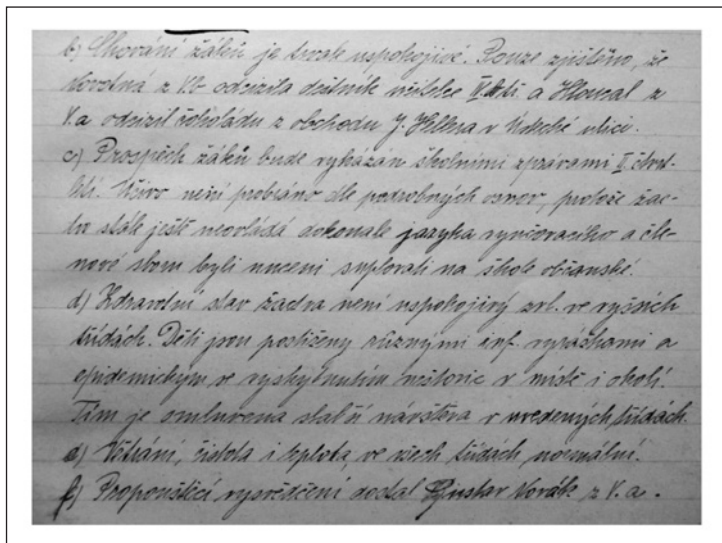 b) Chování žáků je však uspokojivé. Pouze zjištěno, že
Novotná z V.b odcizila deštník učitelce II. tř. a Hloucal z
V.a odcizil čokoládu z obchodu J. Hellera v ulici.
c) Prospěch žáků bude vykázán školními zprávami II. čtvrt-
letí. Učivo není probráno dle podrobných osnov, protože žac-
tvo stále ještě neovládá dokonale jazyka vyučovacího a čle-
nové sboru byli nuceni suplovati na škole občanské.
d) Zdravotní stav žactva není uspokojivý zvl. ve vyšších
třídách. Děti jsou postiženy různými inf. vyrážkami a
epidemickým se vyskytnutím neštovic v místě i okolí.
Tím je omluvena slabší návštěva v uvedených třídách.
e) Větrání, čistota i teplota, ve všech třídách normální.
f) Propouštěcí vysvědčení dostal Gustav Novák z V.a.